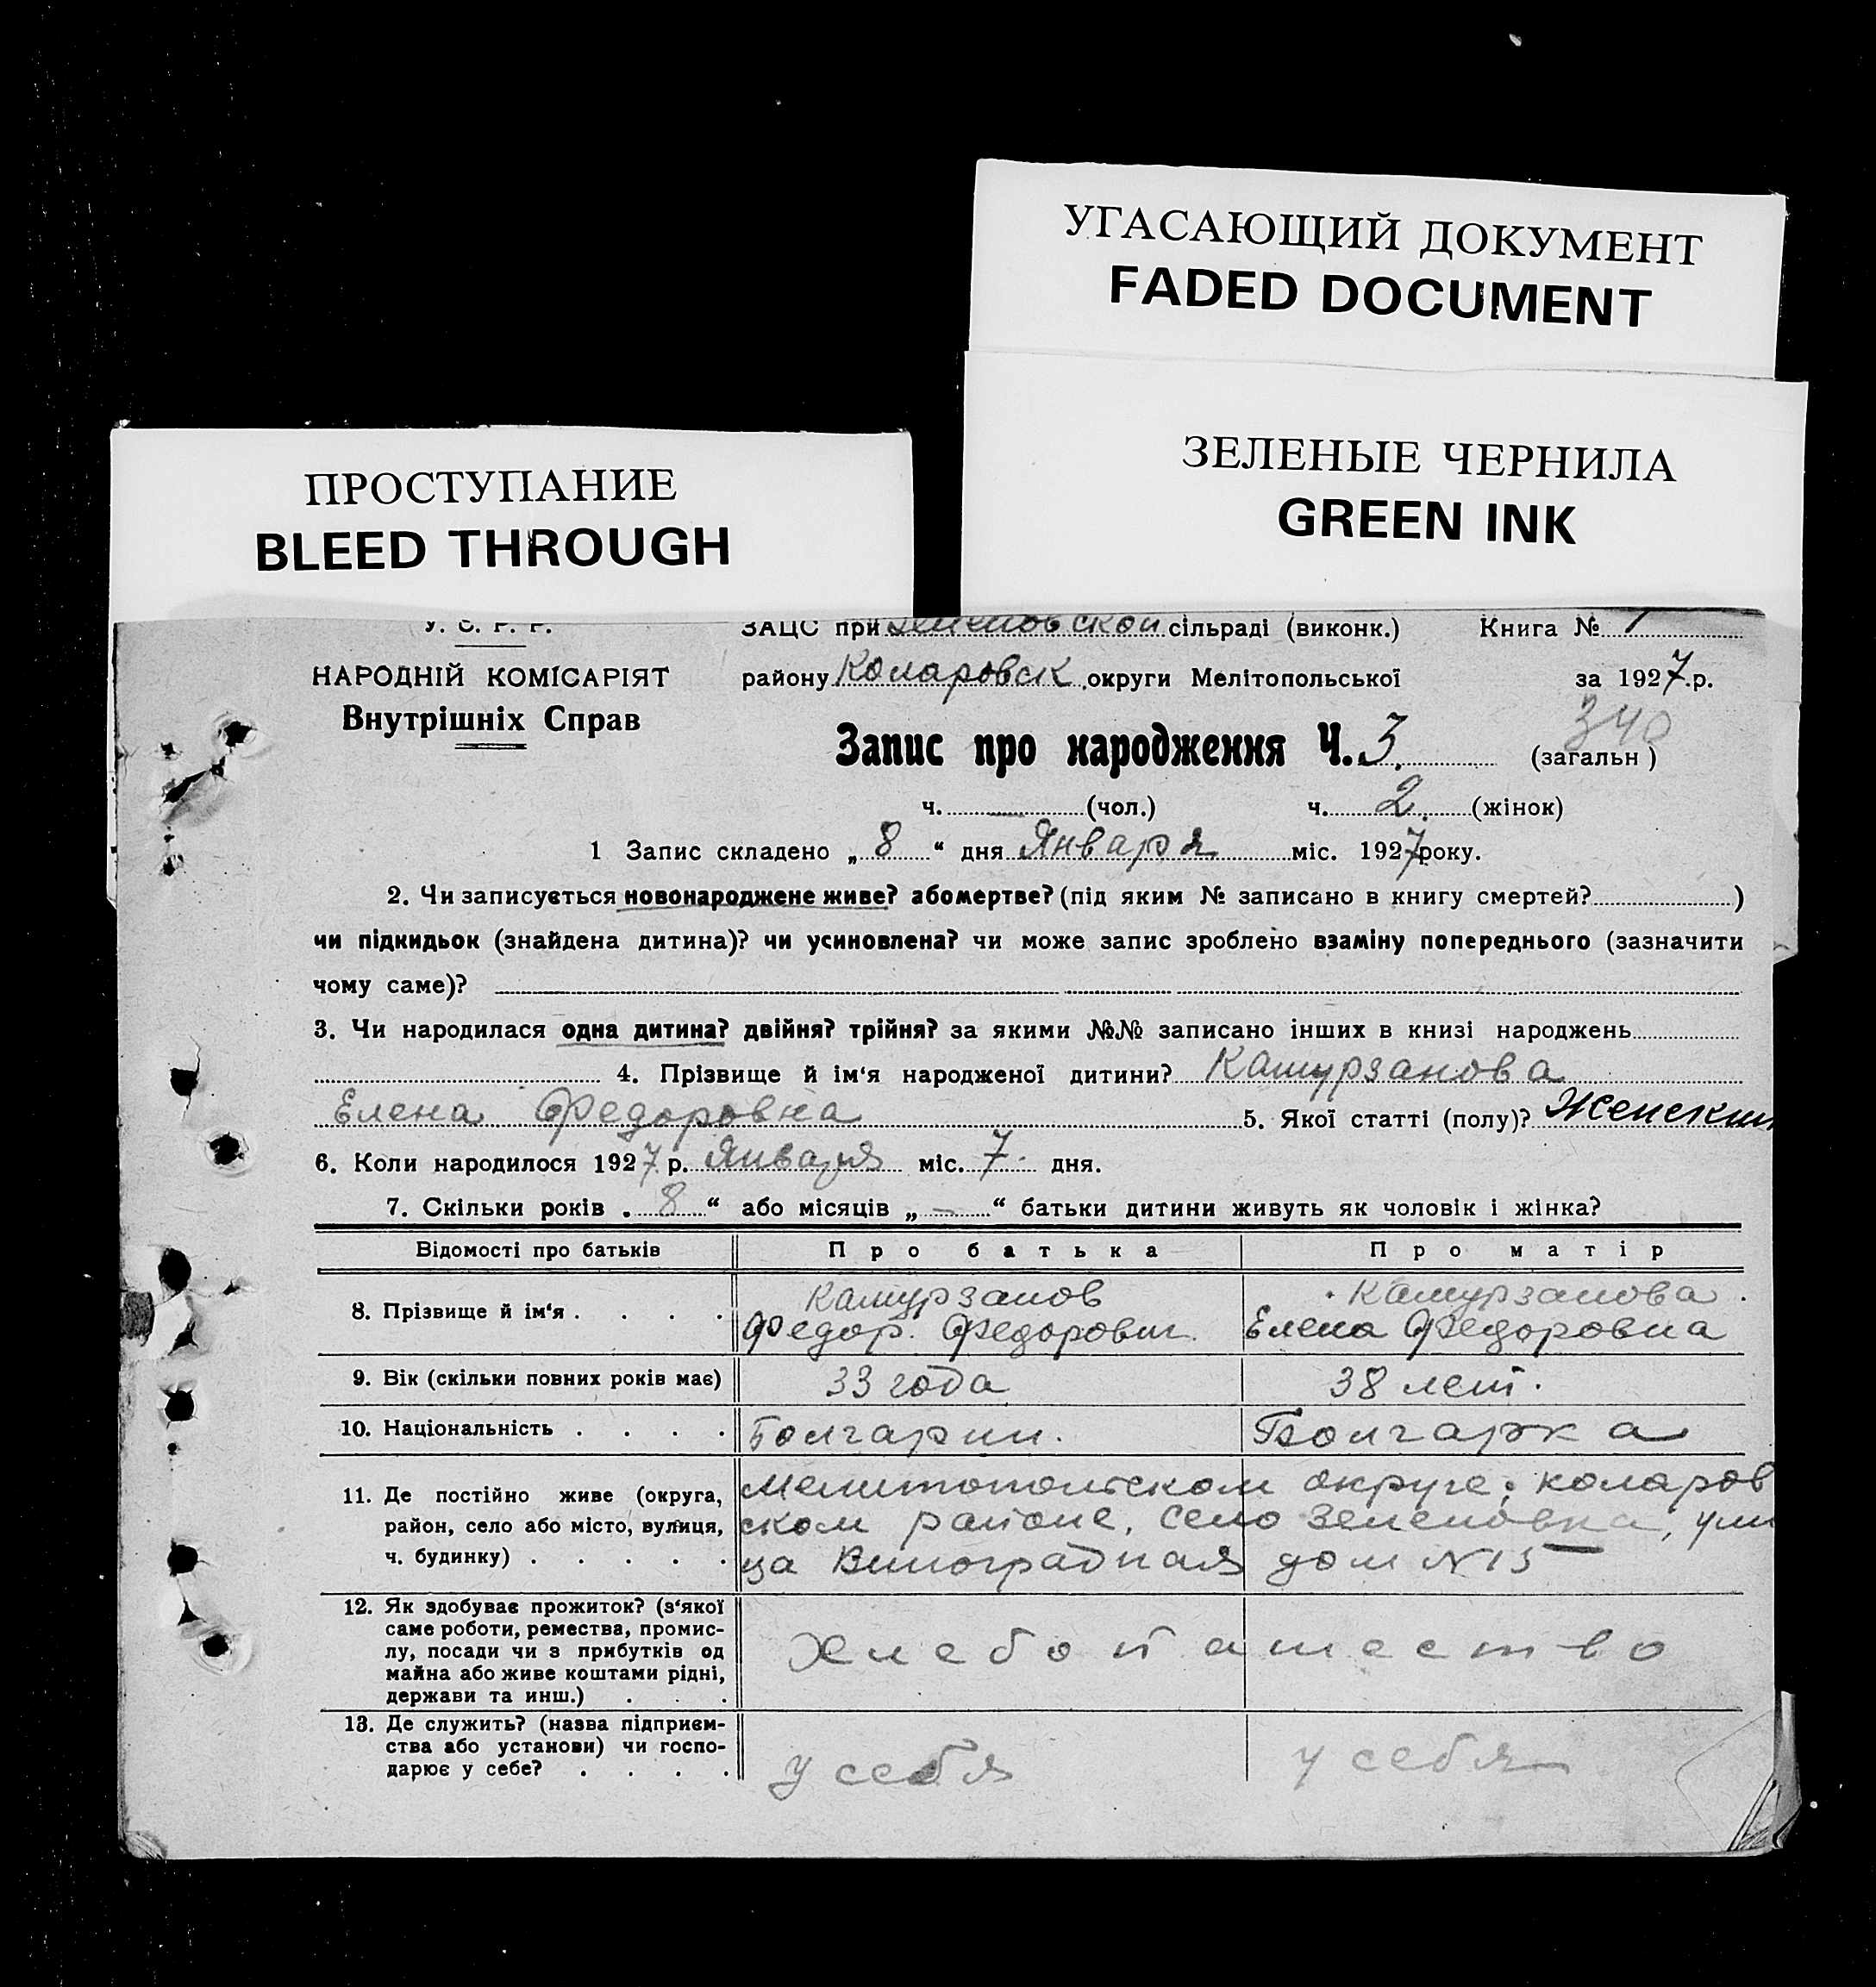 УГАСАЮЩИЙ ДОКУМЕНТ
FADED DOCUMENT
ЗЕЛЕНЫЕ ЧЕРНИЛА
GREEN INK
ПРОСТУПАНИЕ
BLEED THROUGH
У. С. Р. Р.
НАРОДНІЙ КОМІСАРІЯТ
Внутрішніх Справ
ЗАЦС при Зеленовской сільраді (виконк.) Книга № 1
району Коларовск округи Мелітопольської за 1927 р.
340
Запис про народження Ч. 3. (загальн)
ч. — (чол.) ч. 2. (жінок)
1 Запис складено „ 8 “ дня Января міс. 1927 року.
2. Чи записується новонароджене живе? або мертве? (під яким № записано в книгу смертей? )
чи підкидьок (знайдена дитина)? чи усиновлена? чи може запис зроблено взаміну попереднього (зазначити
чому саме)?
3. Чи народилася одна дитина? двійня? трійня? за якими №№ записано інших в книзі народжень
4. Прізвище й ім‘я народженої дитини? Камурзанова
Елена Федоровна 5. Якої статті (полу)? Женский
6. Коли народилося 1927 р. Января міс. 7. дня.
7. Скільки років „ 8 “ або місяців „ — “ батьки дитини живуть як чоловік і жінка?
Відомості про батьків Про батька Про матір
8. Прізвище й ім‘я . . . . Камурзанов Камурзанова.
Федор. Федорович Елена Федоровна
9. Вік (скільки повних років має) 33 года 38 лет.
10. Національність . . . . Болгарин. Болгарка
11. Де постійно живе (округа, Мелитопольском округе, коларов
район, село або місто, вулиця, ском районе, село Зеленовка, ули
ч. будинку) . . . . . ца Виноградная дом N 15
12. Як здобуває прожиток? (з‘якої
саме роботи, ремества, промис-
лу, посади чи з прибутків од
майна або живе коштами рідні,
держави та инш.) . . .
Хлебопашество
13. Де служить? (назва підприєм-
ства або установи) чи госпо-
дарює у себе? . . . .
у себя у себя